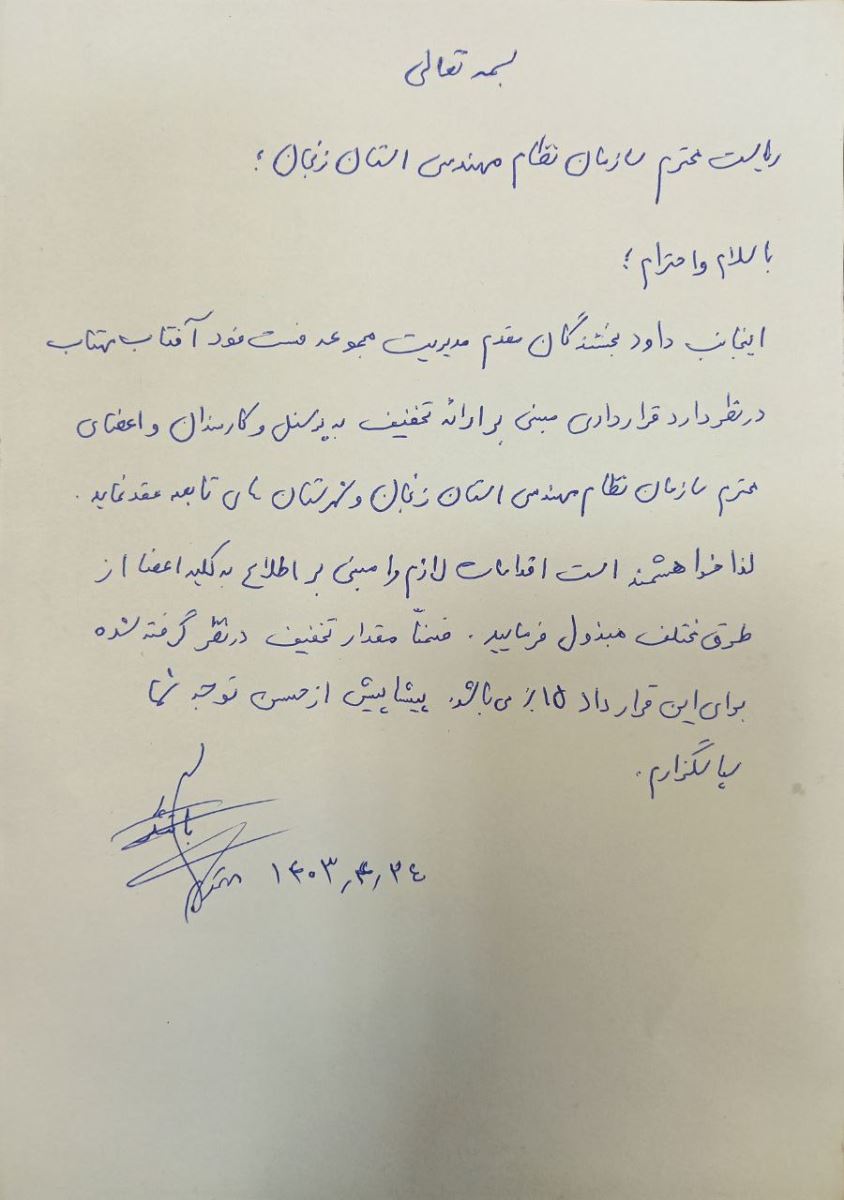 بسمه تعالی
ریاست محترم سازمان نظام مهندسی استان زنجان ؛
با سلام و احترام ؛
اینجانب داود بخشندگان مقدم مدیریت مجموعه فست فود آفتاب مهتاب
در نظر دارد قراردادی مبنی بر ارائه تخفیف به پرسنل و کارمندان و اعضای
محترم سازمان نظام مهندسی استان زنجان و شهرستان های تابعه عقد نماید .
لذا خواهشمند است اقدامات لازم را مبنی بر اطلاع به کلیه اعضا از
طرق مختلف مبذول فرمایید . ضمناً مقدار تخفیف در نظر گرفته شده
برای این قرار داد ۱۵٪ می باشد. پیشاپیش از حسن توجه شما
سپاسگزارم .
با تشکر
۱۴۰۳,۴,۲۴